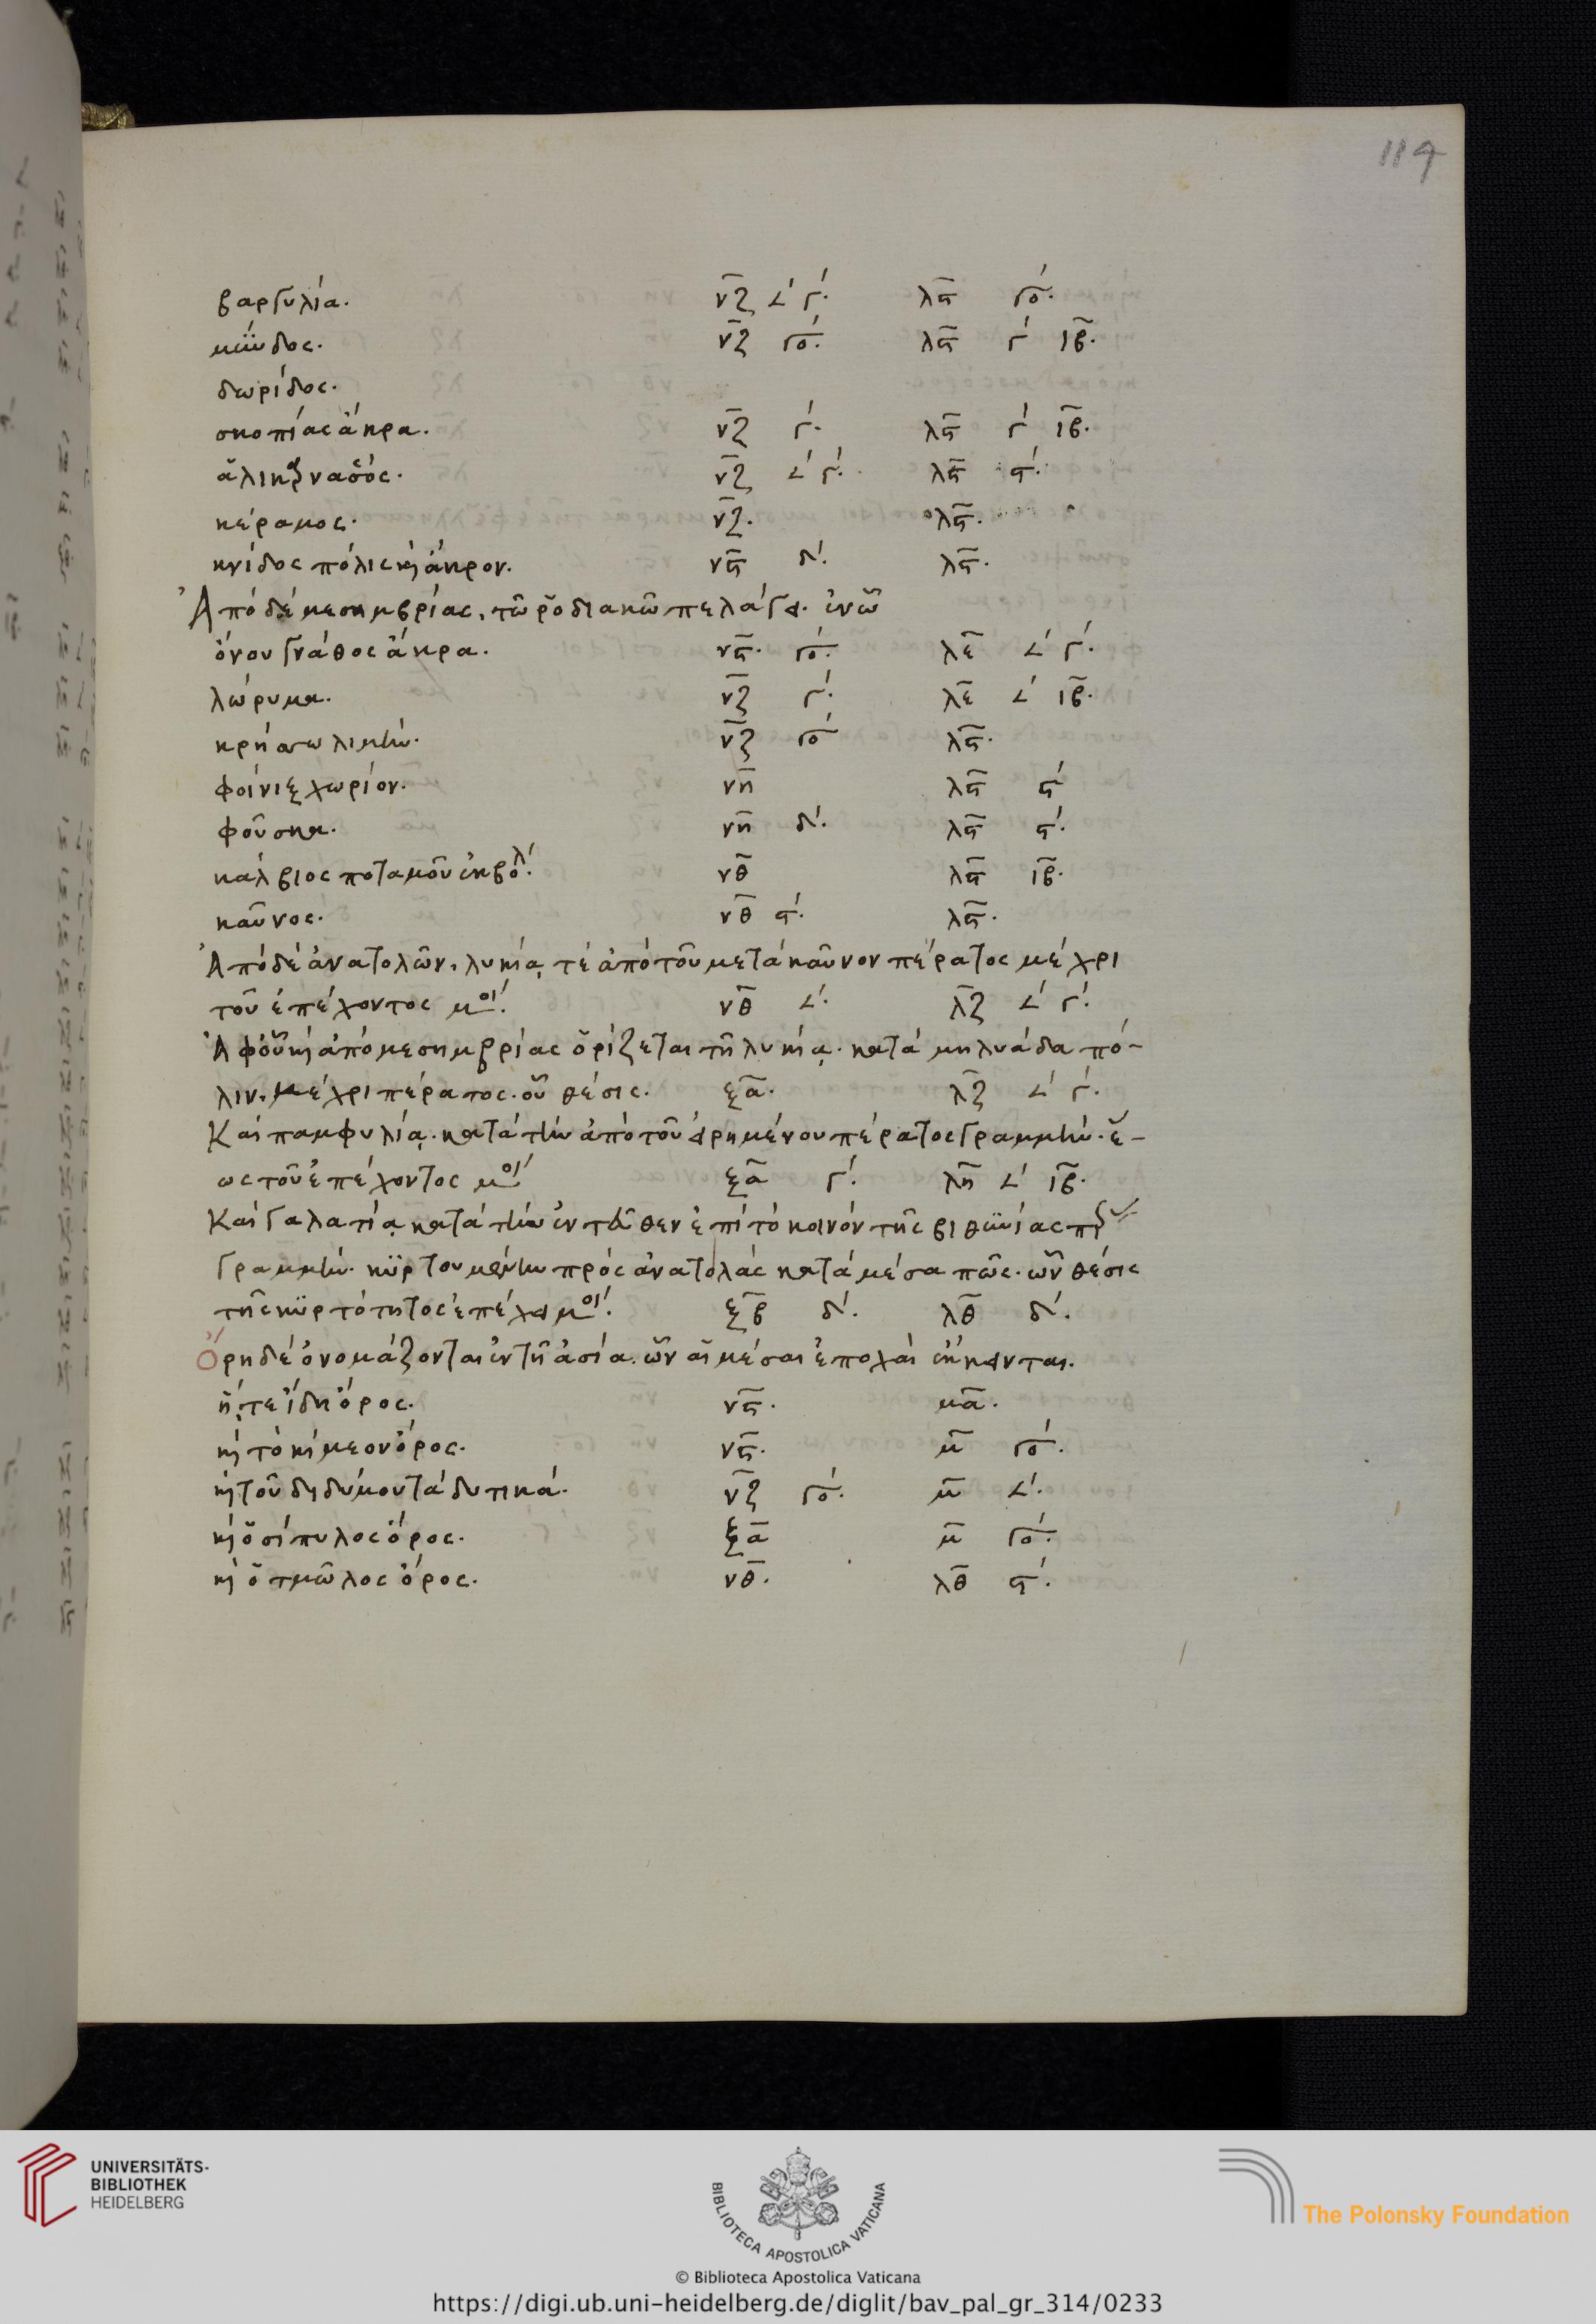 114
βαργυλία. ν̅ζ̅ 𐅵 γ'. λ̅ϛ̅ γο'.
μύνδος. ν̅ζ̅ γο'. λ̅ϛ̅ γ' ι̅β̅.
δωρίδος.
σκοπίας ἄκρα. ν̅ζ̅ γ'. λ̅ϛ̅ γ' ι̅β̅.
ἁλικαρνασσός. ν̅ζ̅ 𐅵 γ'. λ̅ϛ̅ ϛ'.
κέραμος. ν̅ζ̅. λ̅ϛ̅.
κνίδος πόλις κὶ ἄκρον. ν̅ϛ̅ δ'. λ̅ϛ̅.
Ἀπὸ δὲ μεσημβρίας, τῶ ῥοδιακῶ πελάγει. ἐν ὧ
ὄνου γνάθος ἄκρα. ν̅ϛ̅. γο'. λ̅ε̅ 𐅵 γ'.
λώρυμα. ν̅ζ̅ γ'. λ̅ε̅ 𐅵 ι̅β̅.
κρήσσω λιμήν. ν̅ζ̅ γο' λ̅ϛ̅.
φοίνιξ χωρίον. ν̅η̅ λ̅ϛ̅ ϛ'
φοῦσκα. ν̅η̅ δ'. λ̅ϛ̅ ϛ'.
κάλβιος ποταμοῦ ἐκβολ'. ν̅θ̅ λ̅ϛ̅ ι̅β̅.
καῦνος. ν̅θ̅ ϛ'. λ̅ϛ̅.
Ἀπὸ δὲ ἀνατολῶν, λυκίᾳ τὲ ἀπὸ τοῦ μετὰ καῦνον πέρατος μέχρι
τοῦ ἐπέχοντος μοι'. ν̅θ̅ 𐅵. λ̅ζ̅ 𐅵 γ'.
Ἀφ' οὗ κὶ ἀπὸ μεσημβρίας ὁρίζεται τῆ λυκίᾳ. κατὰ μηλυάδα πό-
λιν. μέχρι πέρατος. οὗ θέσις. ξ̅α̅. λ̅ζ̅ 𐅵 γ'.
Καὶ παμφυλίᾳ. κατὰ τὴν ἀπὸ τοῦ εἰρημένου πέρατος γραμμήν. ἕ-
ως τοῦ ἐπέχοντος μοι' ξ̅α̅ γ'. λ̅η̅ 𐅵 ι̅β̅.
Καὶ γαλατίᾳ κατὰ τὴν ἐντεῦθεν ἐπὶ τὸ κοινὸν τῆς βιθυνίας
γραμμήν. κυρτουμένην πρὸς ἀνατολὰς κατὰ μέσα πῶς. ὧν θέσις
τῆς κυρτότητος ἐπέχει μοι'. ξ̅β̅ δ'. λ̅θ̅ δ'.
Ὄρη δὲ ὀνομάζονται ἐν τῆ ἀσία. ὧν αἱ μέσαι ἐποχαὶ ἔκκεινται.
ἥ, τε ἴδη ὄρος. ν̅ϛ̅. μ̅α̅.
κὶ τὸ κίμεον ὄρος. ν̅ϛ̅. μ̅ γο'.
κὶ τοῦ διδύμου τὰ δυτικά. ν̅ζ̅ γο'. μ̅ 𐅵.
κὶ ὁ σίπυλος ὄρος. ξ̅α̅ μ̅ γο'.
κὶ ὁ τμῶλος ὄρος. ν̅θ̅. λ̅θ̅ ϛ'.
UNIVERSITÄTS-
BIBLIOTHEK
HEIDELBERG
BIBLIOTECA APOSTOLICA VATICANA
The Polonsky Foundation
© Biblioteca Apostolica Vaticana
https://digi.ub.uni-heidelberg.de/diglit/bav_pal_gr_314/0233